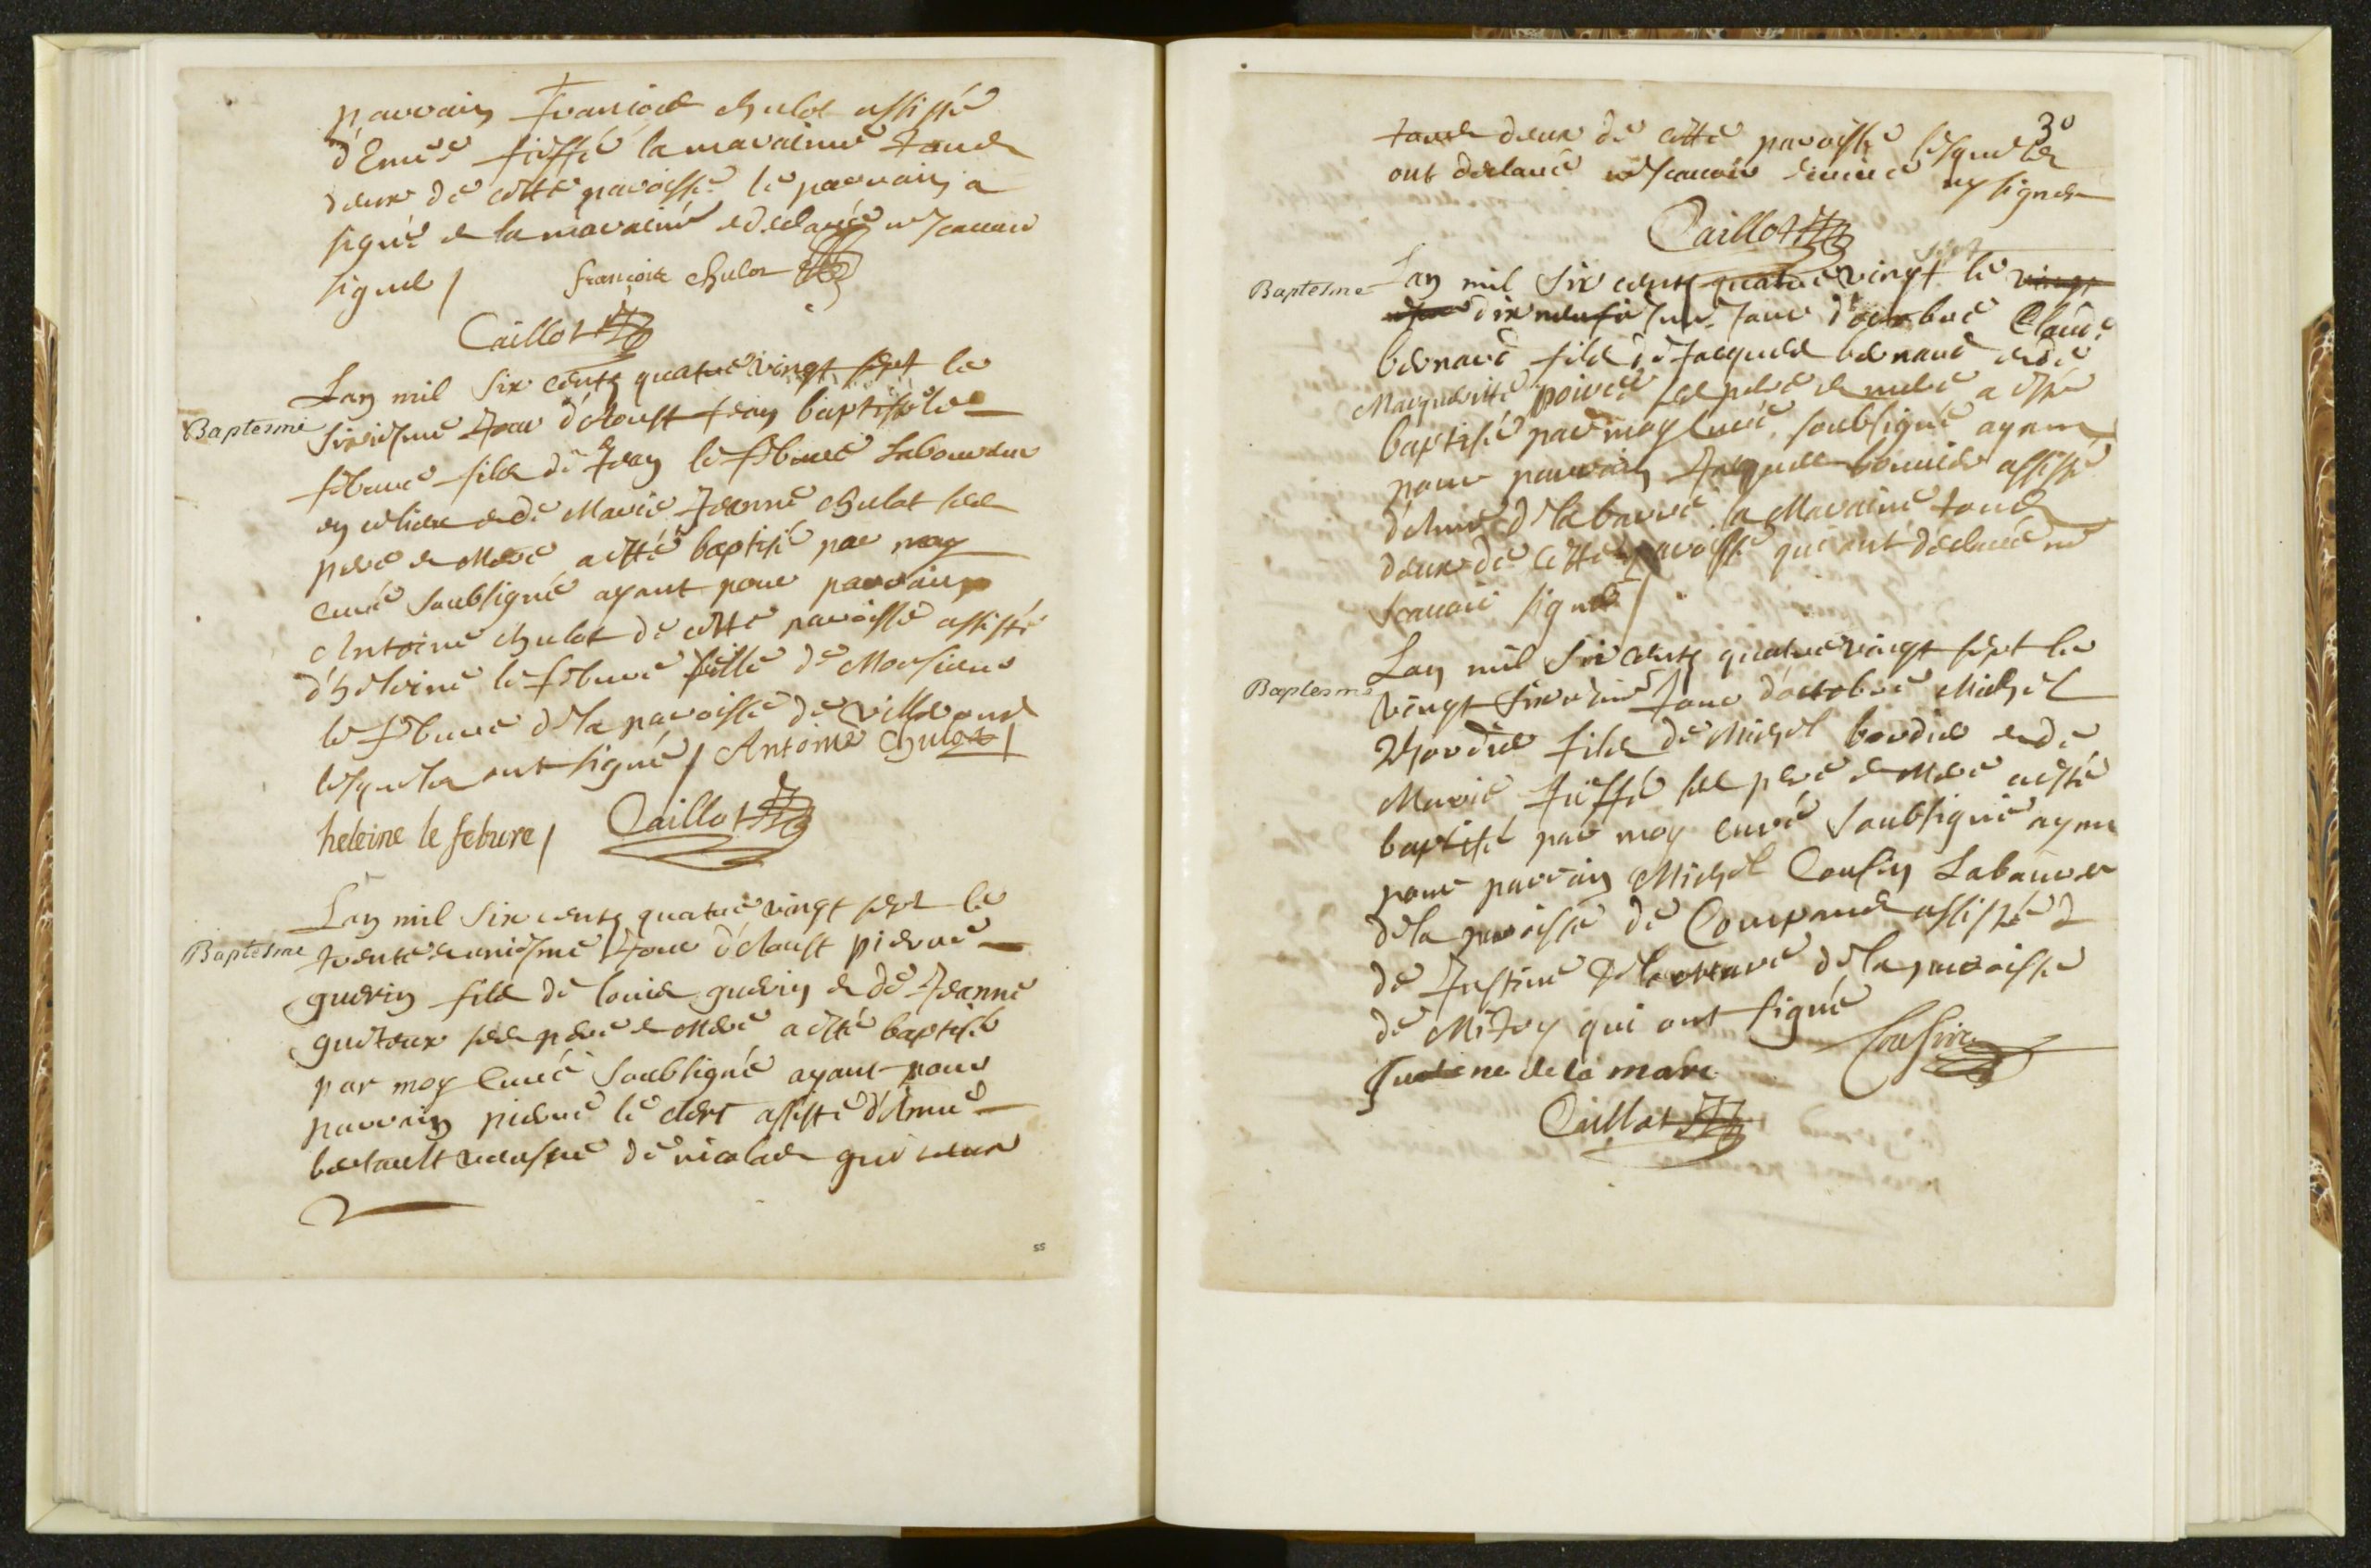 parrain François chulot assisté
d'Emée fieffé la maraine tous
deux de cette paroisse le parrain a
signé et la maraine a declaré ne scauoir
signer / françois chulot
Caillot
Baptesme
Lan mil six cents quatre vingt sept le
sixiesme Jour d'Aoust Jean baptiste le
febure fils de Jean le febure Laboureur
en ce lieu et de Marie Jeanne chulot ses
pere et Mere a esté baptisé par moy
curé soubsigné ayant pour parrain
Antoine chulot de cette paroisse assisté
d'heleine le febure fille de Monsieur
le febure de la paroisse de
lesquels ont signé / Antoine Chulot /
heleine le febure / Caillot
Baptesme
Lan mil six cents quatre vingt sept le
trente uniesme Jour d'Aoust pierre
guerin fils de louis guerin et de Jeanne
ses pere et Mere a esté baptisé
par moy Curé soubsigné ayant pour
parrain pierre le clerc assisté d'Anne
veufue de nicolas
ss
30
tous deux de cette paroisse lesquels
ont declaré ne scauoir escrire ny signer
Caillot
Baptesme
sept
Lan mil six cents quatre vingt le vingt
dix neufie Jour d'octobre Claude
bernard fils de Jacques bernard et de
Margueritte poiree ses pere et mere a esté
baptisé par moy Curé soubsigné ayant
pour parrain Jacques assisté
d'Anne de la barre la Maraine tous
deux de cette paroisse qui ont declaré ne
scauoir signer /
Baptesme
Lan mil six cents quatre vingt sept le
vingt sixiesme Jour d'octobre Michel
bordier fils de Michel bordier et de
Marie fieffé ses pere et Mere a esté
baptisé par moy curé soubsigné ayant
pour parrain Michel Cousin Laboureur
de la paroisse de Compans assisté
de Justine de la mare de la paroisse
de Mitry qui ont signé
Cousin
de la mare
Caillot